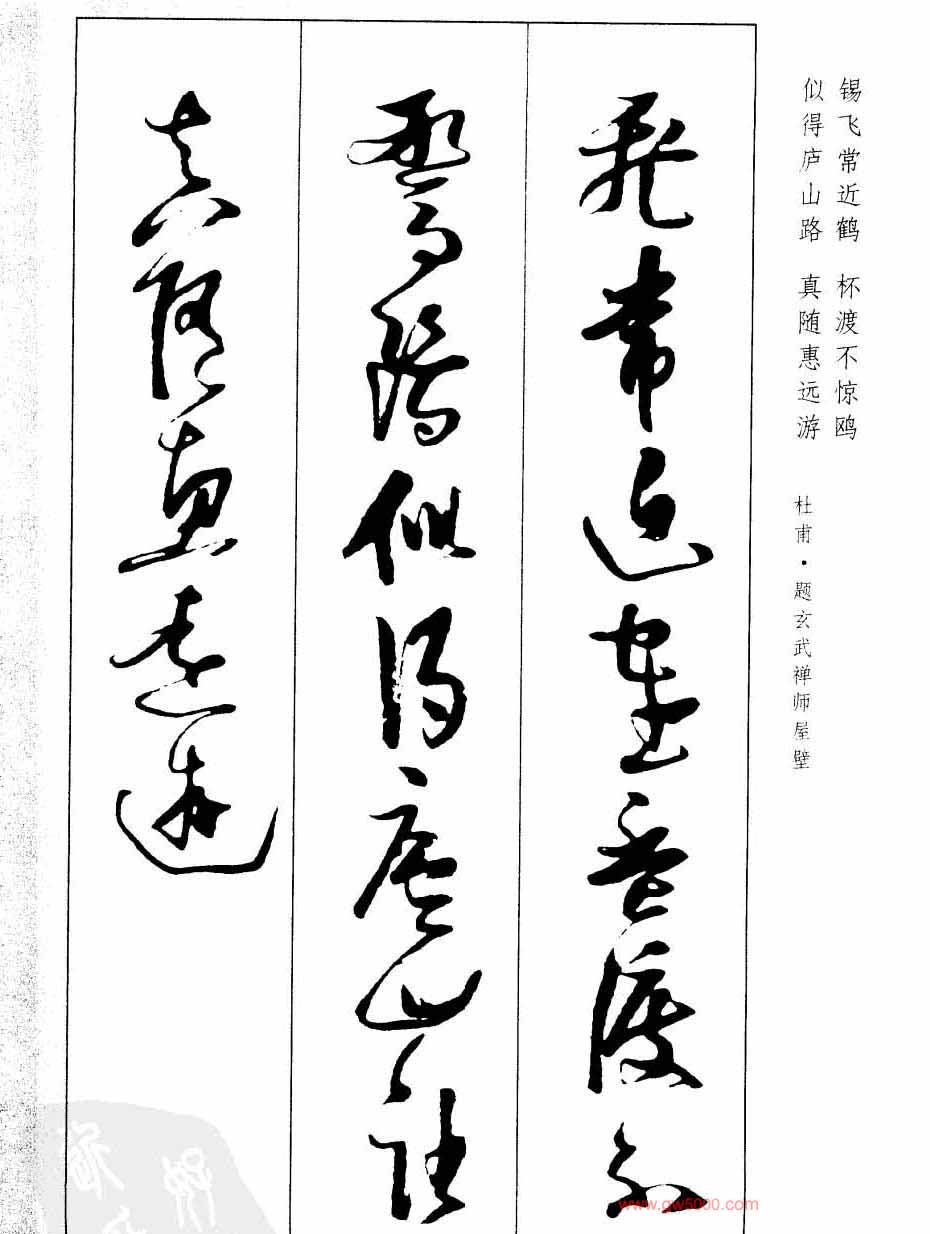 锡飞常近鹤 杯渡不惊鸥
似得庐山路 真随惠远游
杜甫·题玄武禅师屋壁
飛常近鶴盃渡不
驚鷗似得廬山路
真随惠遠遊
www.gw5000.com